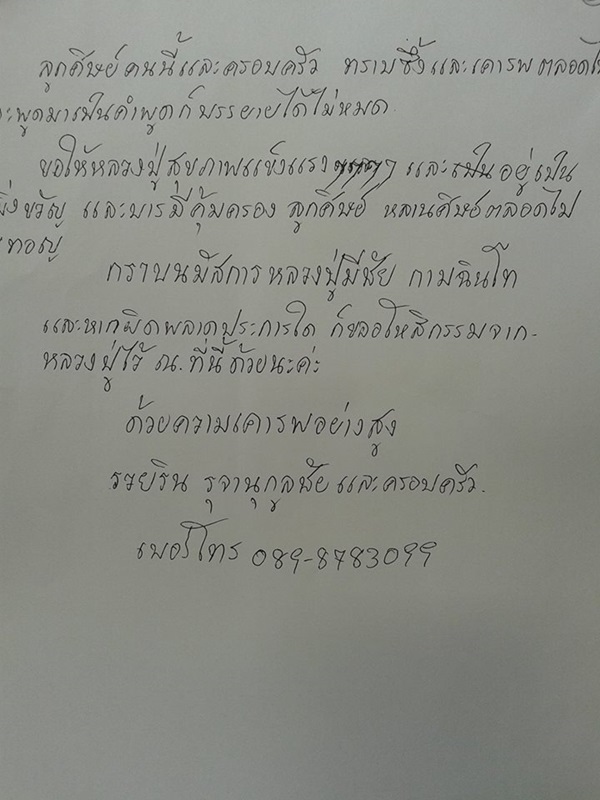 ลูกศิษย์คนนี้และครอบครัว ทราบซึ้งและเคารพตลอดไป
จะพูดมาเป็นคำพูดก็บรรยายได้ไม่หมด
ขอให้หลวงปู่สุขภาพแข็งแรง และเป็นอยู่เป็น
มิ่งขวัญ และบารมีคุ้มครอง ลูกศิษย์ หลานศิษย์ตลอดไป
กราบนมัสการหลวงปู่มีชัย กามฉินโท
และหากผิดพลาดประการใด ก็ขออโหสิกรรมจาก-
หลวงปู่ไว้ ณ. ที่นี้ด้วยนะค่ะ
ด้วยความเคารพอย่างสูง
รวยริน รุจานุกูลชัย และครอบครัว.
เบอร์โทร 089-8783099